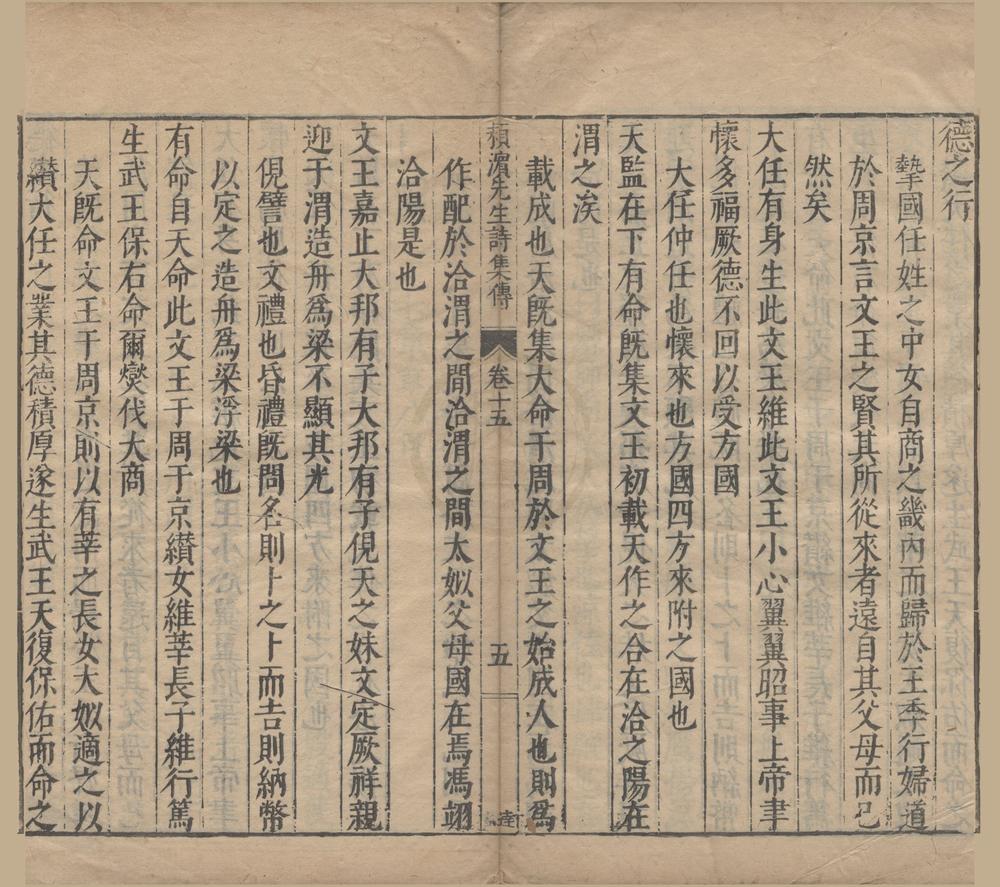 德之行
摯國任姓之中女自商之畿內而歸於王季行婦道
於周京言文王之賢其所從來者遠自其父母而已
然矣
大任有身生此文王維此文王小心翼翼昭事上帝聿
懷多福厥德不回以受方國
大任仲任也懷來也方國四方來附之國也
天監在下有命旣集文王初載天作之合在洽之陽在
渭之涘
載成也天旣集大命于周於文王之始成人也則爲
作配於洽渭之間洽渭之間太姒父母國在焉馮翊
洽陽是也
文王嘉止大邦有子大邦有子俔天之妹文定厥祥親
迎于渭造舟爲梁不顯其光
俔譬也文禮也昏禮旣問名則卜之卜而吉則納幣
以定之造舟爲梁浮梁也
有命自天命此文王于周于京纘女維莘長子維行篤
生武王保右命爾燮伐大商
天旣命文王于周京則以有莘之長女大姒適之以
纘大任之業其德積厚遂生武王天復保佑而命之
潁濱先生詩集傳
卷十五
五